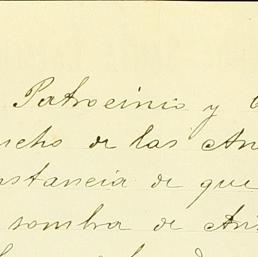 Patrocinio y
ucho de las An
nstancia de que
sombra de Ant